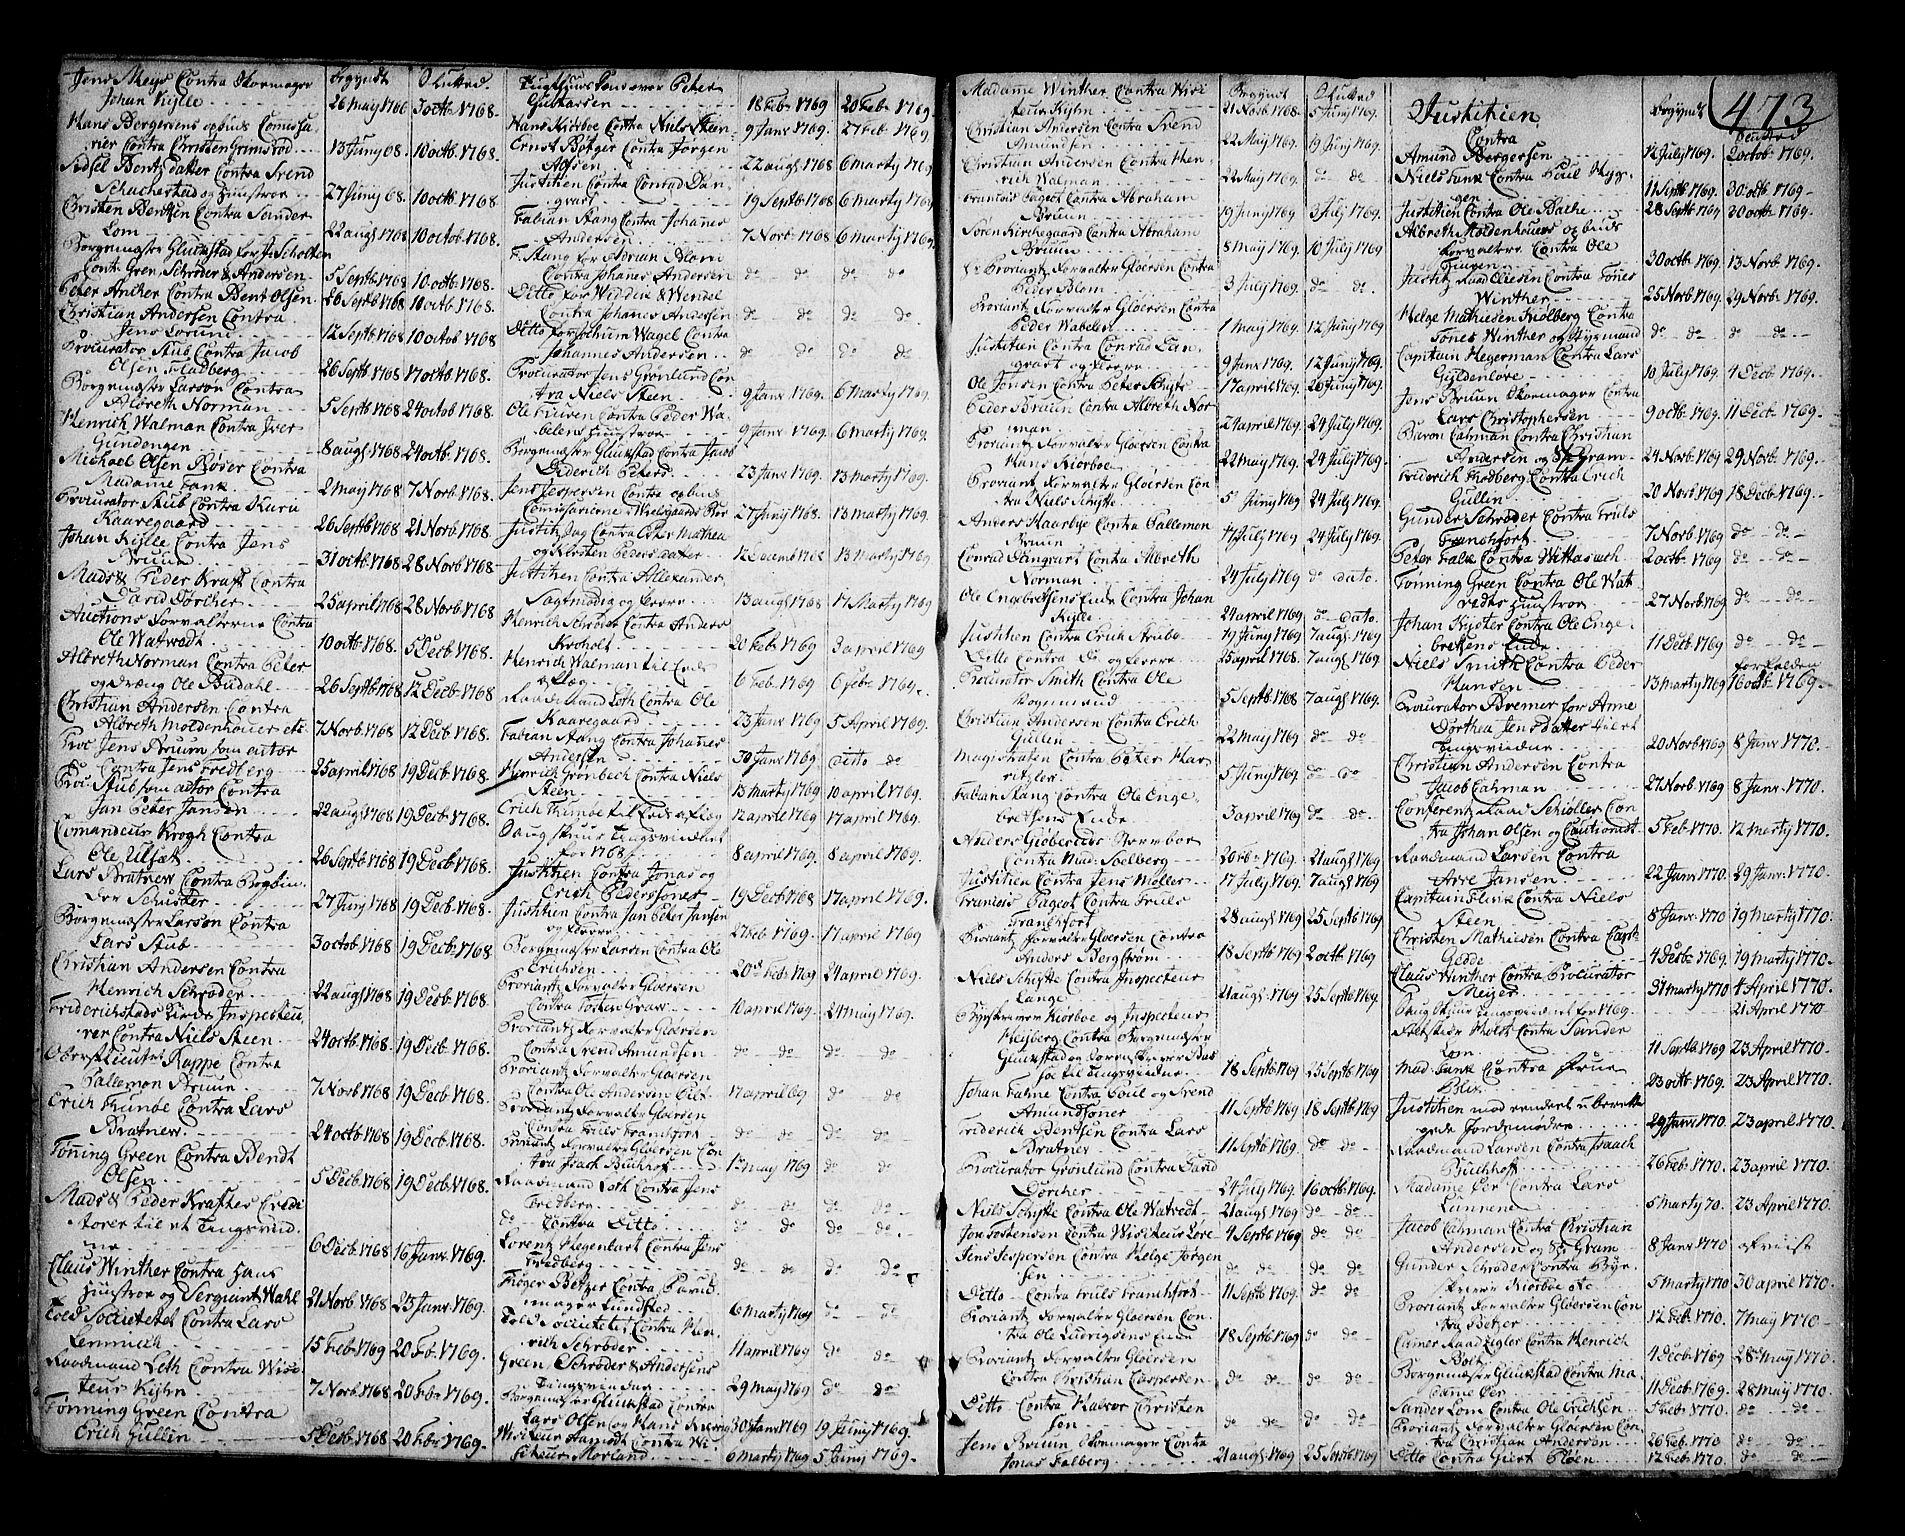 Jens Meyer Contra Skormager Begyndt Slutted
Johan Kÿlle 26 May 1768 3 octb 1768.
Hans Bergersens opbuds Comissa
rier Contra Christen Grimsrød 13 Junÿ 68. 10 octb. 1768.
Sidsel Bentz datter Contra Svend
Schackestad og Hustroe 27 Junÿ 68. 10 octb 1768
Christen Bentsen Contra Sander
Lom 22 augs 1768 10 octob 1768.
Borgemester Gluckstad for J. Scholten
Cont. Green, Schrøder & Andersen 5 Septb 1768 10 octb 1768.
Peter Ancher Contra Bent Olsen 26 Septb 1768 10 octb 1768.
Christian Andersen Contra
Jens Lorum 12 Septb 1768 10 octob 1768.
Procurator Stub Contra Jacob
Olsen Fladberg 26 Septb 1768 17 octb 1768.
Borgemester Larson Contra
Albreth Norman 5 Septb 1768 24 octob 1768.
Henrich Walman Contra Iver
Gundengen 8 augs 1768 24 octb. 1768.
Michael Olsen Røser Contra
Madame Fank 2 May 1768 7 Novb. 1768.
Procurator Stub Contra Kuru
Kaaregaard 26 Septb 1768 21 Novb 1768.
Johan Kÿlle Contra Jens
Bruun 31 octb 1768 28 Novb 1768.
Mads & Peder Kraft Contra
David Dørcher 25 april 1768 28 Novb 1768
Auctions Forvalterne Contra
Ole Watwedt 10 octb 1768 5 Decb 1768.
Albreth Norman Contra Peter
og dræng Ole Budahl 26 Septb 1768 12 Decb 1768
Christian Andersen Contra
Albreth Moldenhouer etc 7 Novb. 1768 12 Decb 1768
Proc Jens Bruun som actor
Contra Jens Fredberg 25 april 1768 19 Decb 1768.
Proc Stub som actor Contra
Jan Peter Jansen 22 augs 1768 19 Decb 1768.
Comandeur Krogh Contra
Ole Ulfæt 26 Septb 1768 19 Decb 1768.
Lars Bratner Contra Bogbin
der Schuster 27 Junÿ 1768 19 Decb 1768.
Borgemester Larson Contra
Lars Stub 3 octob 1768 19 Decb 1768.
Christian Andersen Contra
Henrich Schrøder 22 augs 1768 19 Decb 1768.
Friderichstads Inspecteu
rer Contra Niels Steen 24 octb 1768 19 Decb 1768.
Oberstlieutnt Rappe Contra
Pallemon Bruun 7 Novb 1768 19 Decb 1768.
Erich Thunbe Contra Lars
Bratner 24 octb 1768 19 Decb 1768.
Tønning Green Contra Bendt
Olsen 5 Decb 1768 19 Decb 1768.
Mads & Peder Krafts Credi
torer til et Tingsvid
ne 6 Decb 1768 16 Janv. 1769.
Claus Winther Contra Hans
Hustroe og Sergiant Wahl 21 Novb 1768 23 Janv. 1769.
Told Societetet Contra Lars
Lemmich 15 Feb 1769 20 Fb. 1769.
Raadmand Leth Contra Visi
teur Kÿhn 7 Novb. 1768 20 Feb 1769.
Tønning Green Contra
Erich Gullin 5 Decb 1768 20 Feb 1769.
Tugthuus Fange over Peter
Gustavsen 18 Feb 1769 20 Feb 1769
Hans Kiørboe Contra Niels Steen 9 Janv 1769. 27 Feb 1769
Ernst Betger Contra Jørgen
Alfsen 22 augs 1768 6 marty 1769
Justitien Contra Conrad Dan
gvart 19 Septb 1768 6 marty 1769
Fabian Stang Contra Johanes
Andersen 7 Novb 1768 6 marty 1769.
F. Stang for Adrian Blom
Contra Johanes Andersen do do do do
Ditto for Widdik & Wendel
Contra Johanes Andersen do do do do
Ditto for Jochum Wagel Contra
Johannes Andersen do do do do
Procurator Jens Grønlund Con
tra Niels Steen 9 Janv 1769. 6 marty 1769.
Ole Tuven Contra Peder Wa
belens Hustroe 9 Janv 1769. 6 marty 1769.
Borgemester Glückstad Contra Jacob
Diderich Peters 23 Janv 1769. 13 marty 1769.
Jens Jespersen Contra opbuds
Comissarierne i Wielsgaards Boe 27 Junÿ 1768. 13 marty 1769.
Justitz Sag Contra Peter Mathea
og Kirsten Peders datter 12 Decemb 1768 13 marty 1769
Justitien Contra Allexander
Sagtmødig og fleere 13 augs 1768 17 Marty 1769
Henrich Schrøder Contra Anders
Kroholt 20 Feb 1769 3 april 1769.
Henrich Walman til Eeds
aflæg 6 Feb 1769 6 Febr 1769.
Raadmand Leth Contra Ole
Kaaregaard 23 Janv 1769 5 April 1769.
Fabian Stang Contra Johanes
Andersen 30 Janv 1769 ditto do
Henrich Grønbech Contra Niels
Steen 13 marty 1769 10 april 1769.
Erich Thunbe til Eeds aflæg 12 april 1769 17 april 1769.
Saug skuur Tingsvidnet
for 1768 8 april 1769. 8 april 1769.
Justitien Contra Jonas og
Erich Peders sønner 19 Decb 1768 17 april 1769.
Justitien Contra Jan Peter Jansen
og fleere 27 Feb 1769. 17 april 1769
Borgemester Larsen Contra Ole
Erichsen 20 Feb 1769 24 april 1769.
Proviantz Forvalter Gloersen
Contra Torsten Graw 10 april 1769. 24 may 1769.
Proviantz Forvalter Gloersen
Contra Svend Amundsen do do do do
Proviantz Forvalter Gloersen
Contra Ole Andersen 17 april 69. do do
Proviantz Forvalter Gloersen
Contra Truls Franchfort do do do do
Proviantz Forvalter Gloersen Con
tra Isach Buchhof 1 may 1769 do do
Raadmand Leth Contra Jens
Fredberg do do do do
do Contra Ditto do do do do
Lorentz Hegenbart Contra Jens
Fredberg do do do do
Tiøger Betzer Contra Parüc
mager Lundsted 6 marty 1769 do do
Told Societetet Contra Hen
rich Schrøder 11 april 1769 do do
Green, Schrøder & Andersens
Tingsvidne 29 May 1769 do do
Borgemester Gluckstad Contra
Lars Olsen og Hans Iversen 30 Janv 1769 19 Junÿ 1769.
Visiteur Aamodt Contra Vi
siteur Morland 6 Marty 1769 5 Junÿ 1769.
Madame Winther Contra Visi Begyndt Slutted
teur Kÿhn 21 Novb 1768. 5 Junÿ 1769.
Christian Andersen Contra Svend
Amundsen 22 May 1769 19 Junÿ 1769.
Christian Andersen Contra Hen
rich Walman 22 May 1769. do do
Francois Pageot Contra Abraham
Bruun 19 Junÿ 1769. 3 July 1769.
Søren Kirchegaard Contra Abraham
Bruun 8 may 1769. 10 July 1769
Proviantz Forvalter Gloersen Contra
Peder Blom 3 July 1769. do do.
Proviantz Forvalter Gloersen Contra
Peder Wabelen 1 may 1769. 12 Junÿ 1769
Justitien Contra Conrad Dan
gvart og fleere 9 Janv 1769. 12 Junÿ 1769.
Ole Jonsen Contra Peter Schÿtte 17 april 1769. 26 Junÿ 1769.
Peder Bruun Contra Albreth Nor
man 24 april 1769. 24 July 1769.
Proviantz Forvalter Gloersen Contra
Hans Kiørboe 22 May 1769. 24 July 1769.
Proviantz Forvalter Gloersen Con
tra Niels Schÿtte 5 Junÿ 1769 24 July 1769
Anders Kaarbÿe Contra Pallemon
Bruun 17 July 1769. 24 July 1769.
Conrad Dangvart Contra Albreth
Norman 24 July 1769. do dato.
Ole Engebretsens Enke Contra Johan
Kÿlle 24 april 1769 do dato.
Justitien Contra Erich Strube 19 Junÿ 1769 7 augs 1769.
Ditto Contra do og fleere 25 april 1768. 7 augs 1769.
Procurator Smith Contra Ole
5 Septb 1768 7 augs 1769.
Christian Andersen Contra Erich
Gullen 22 May 1769 do do
Contra Peter Mar
5 Junÿ 1769. do do.
Fabian Stang Contra Ole Enge
bretsens Enke 3 april 1769 do do.
Contra Mad. Soelberg 20 Feb 1769. 21 augs 1769
Justitien Contra Jens Møller 17 July 1769. 7 augs 1769
Francois Pageot Contra Truls
Franchfort 28 augs 1769 25 Septb 1769.
Proviantz Forvalter Gloersen Contra
Anders Bergstrøm 18 Septb 1769 2 octb 1769.
Niels Schÿtte Contra Inspecteur
Lange 21 augs 1769. 25 Septb 1769.
Bÿskriver Kiørboe og Inspecteur
Heÿberg Contra Borgemester
Gluckstad og
til Tingsvidne 18 Septb 1769 25 Septb 1769.
Johan Falne Contra Poul og Svend
Amundsøner 11 Septb 1769 18 Septb 1769.
Friderich Bentsen Contra Lars
Bratner 11 Septb 1769 do do
Procurator Grønlund Contra David
Dørcher 24 July 1769 16 octb 1769.
Niels Schÿtte Contra Ole Watvedt 21 augs 1769 do do
Jon Torstensen Contra Visiteur Love 4 Septb 1769 do do
Jens Jespersen Contra Helge Jørgen
sen do do do do
Ditto Contra Truls Franchfort 11 Septb 1769 do do
Proviantz Forvalter Gloersen Con
tra Ole Ludvigsens Enke 18 Septb 1769 do do
Proviantz Forvalter Gloersen
Contra Christian Caspersen do do do do
Ditto Contra Halvor Christen
sen do do do do
Jens Bruun Skomager Contra
Jonas Falberg 21 augs 1769 25 Septb 1769
473
Justitien Begyndt Slutted
Contra
Amund Bergersen 12 July 1769. 2 octob 1769.
Niels Fank Contra Poul Skyg
gen 11 Septb 1769. 30 octb 1769
Justitien Contra Ole Bache 28 Septb 1769 20 octb 1769.
Albreth Moldenhouers opbuds
Forvalter Contra Ole
Tuven 30 octb 1769. 13 Novb. 1769.
Justitz Raad Eliesen Contra Tønes
Winther 25 Novb 1769. 29 Novb 1769.
Helge Mathiesen Kiølberg Contra
Tønes Winther og Hysmand do do do do
Capitain Hegerman Contra Lars
Gyldenløve 10 July 1769 4 Decb 1769.
Jens Bruun Skormager Contra
Lars Christophersen 9 octb 1769. 11 Decb 1769.
Baron Calman Contra Christian
Andersen og Sr. Gram 24 Novb 1769. 29 Novb 1769.
Friderich Fredberg Contra Erich
Gullin 20 Novb 1769 18 Decb 1769.
Gunder Schrøder Contra Truls
Franchfort 7 Novb 1769 do do
Peter Falk Contra Wittasach 2 octb 1769 do do
Tønning Green Contra Ole Wat
vedts Hustroe 27 Novb 1769 do do
Johan Kÿster Contra Ole Enge
bretsens Enke 11 Decb 1769. do do
Niels Smith Contra Peder forfalden
Hansen 13 marty 1769 16 octb 1769.
Procurator Bremer for Anne
Dorthea Jens datter til et
Tingsvidne 20 Novb 1769 8 Janv. 1770.
Christian Andersen Contra
Jacob Calman 27 Novb 1769 8 Janv. 1770.
Conferentz Raad Schiøller Con
tra Johan Olsen og Cautionist 5 Feb 1770. 12 marty 1770.
Raadmand Larsen Contra
Arre Jansen 22 Janv 1770. 29 Janv. 1770.
Capitain Flink Contra Niels
Steen 8 Janv. 1770 19 marty 1770.
Christen Mathiesen Contra Capt
Gedde 4 Decb 1769. 19 marty 1770.
Claus Winther Contra Procurator
Meÿer 31 marty 1770 4 April 1770.
Saug skuur Tingsvidnet for 1769. 21 April 1770
Contra Sander
Lom 11 Septb 1769 23 April 1770.
Mad Fank Contra Frue
Blix 23 octb 1769. 23 April 1770.
Justitien
gede Jordemødre 29 Janv 1770 23 april 1770.
Raadmand Larsen Contra Isaach
Buchhoff 26 Feb 1770. 23 april 1770.
Madame Øer Contra Lars
Lunnene 5 marty 70. 23 April 1770.
Jacob Calman Contra Christian
Andersen og Sr Gram 8 Janv 1770 afviist
Gunder Schrøder Contra Bÿe
skriver Kiørboe etc 5 marty 1770 30 april 1770.
Proviantz Forvalter Gloersen Con
tra Betzer 12 Feb 1770. 7 may 1770.
Camer Raad Zigler Contra Henrich
Bolt 4 Decb 1769 28 may 1770.
Borgemester Gluckstad Contra Ma
dame Øer 11 Decb 1769. 28 may 1770.
Sander Lom Contra Ole Erichsen 5 Feb 1770. do do
Proviantz Forvalter Gloersen Con
tra Christian Andersen 26 Feb 1770 do do
Ditto Contra Giert Fløen 12 Feb 1770. do do